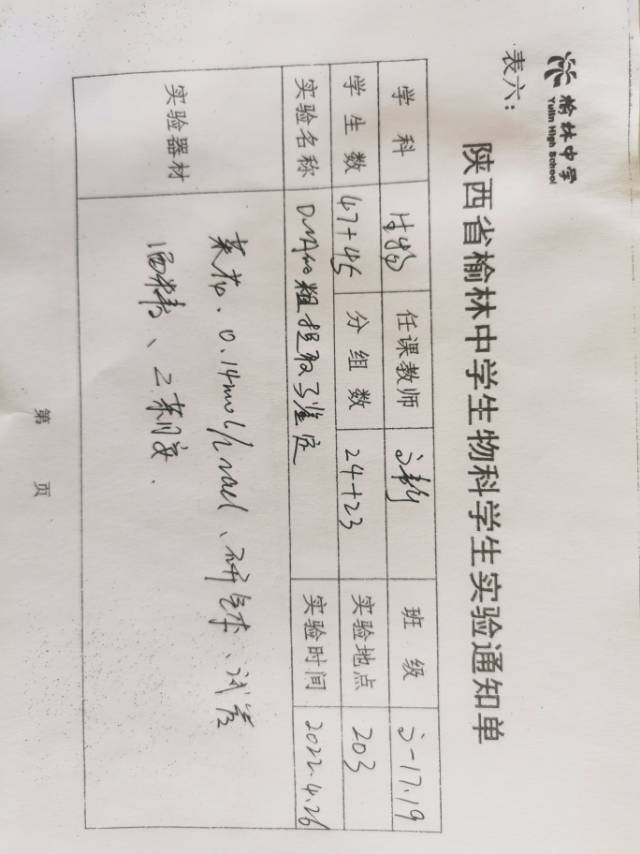 榆林中学
Yulin High School
表六：
陕西省榆林中学生物科学生实验通知单
学科 生物 任课教师 班级 17.19
学生数 47+45 分组数 24+23 实验地点 203
实验名称 DNA的粗提取与鉴定 实验时间 2022.4.26
实验器材 菜花、0.14mol/L nacl、研钵、试管
酒精、二苯胺.
第 页